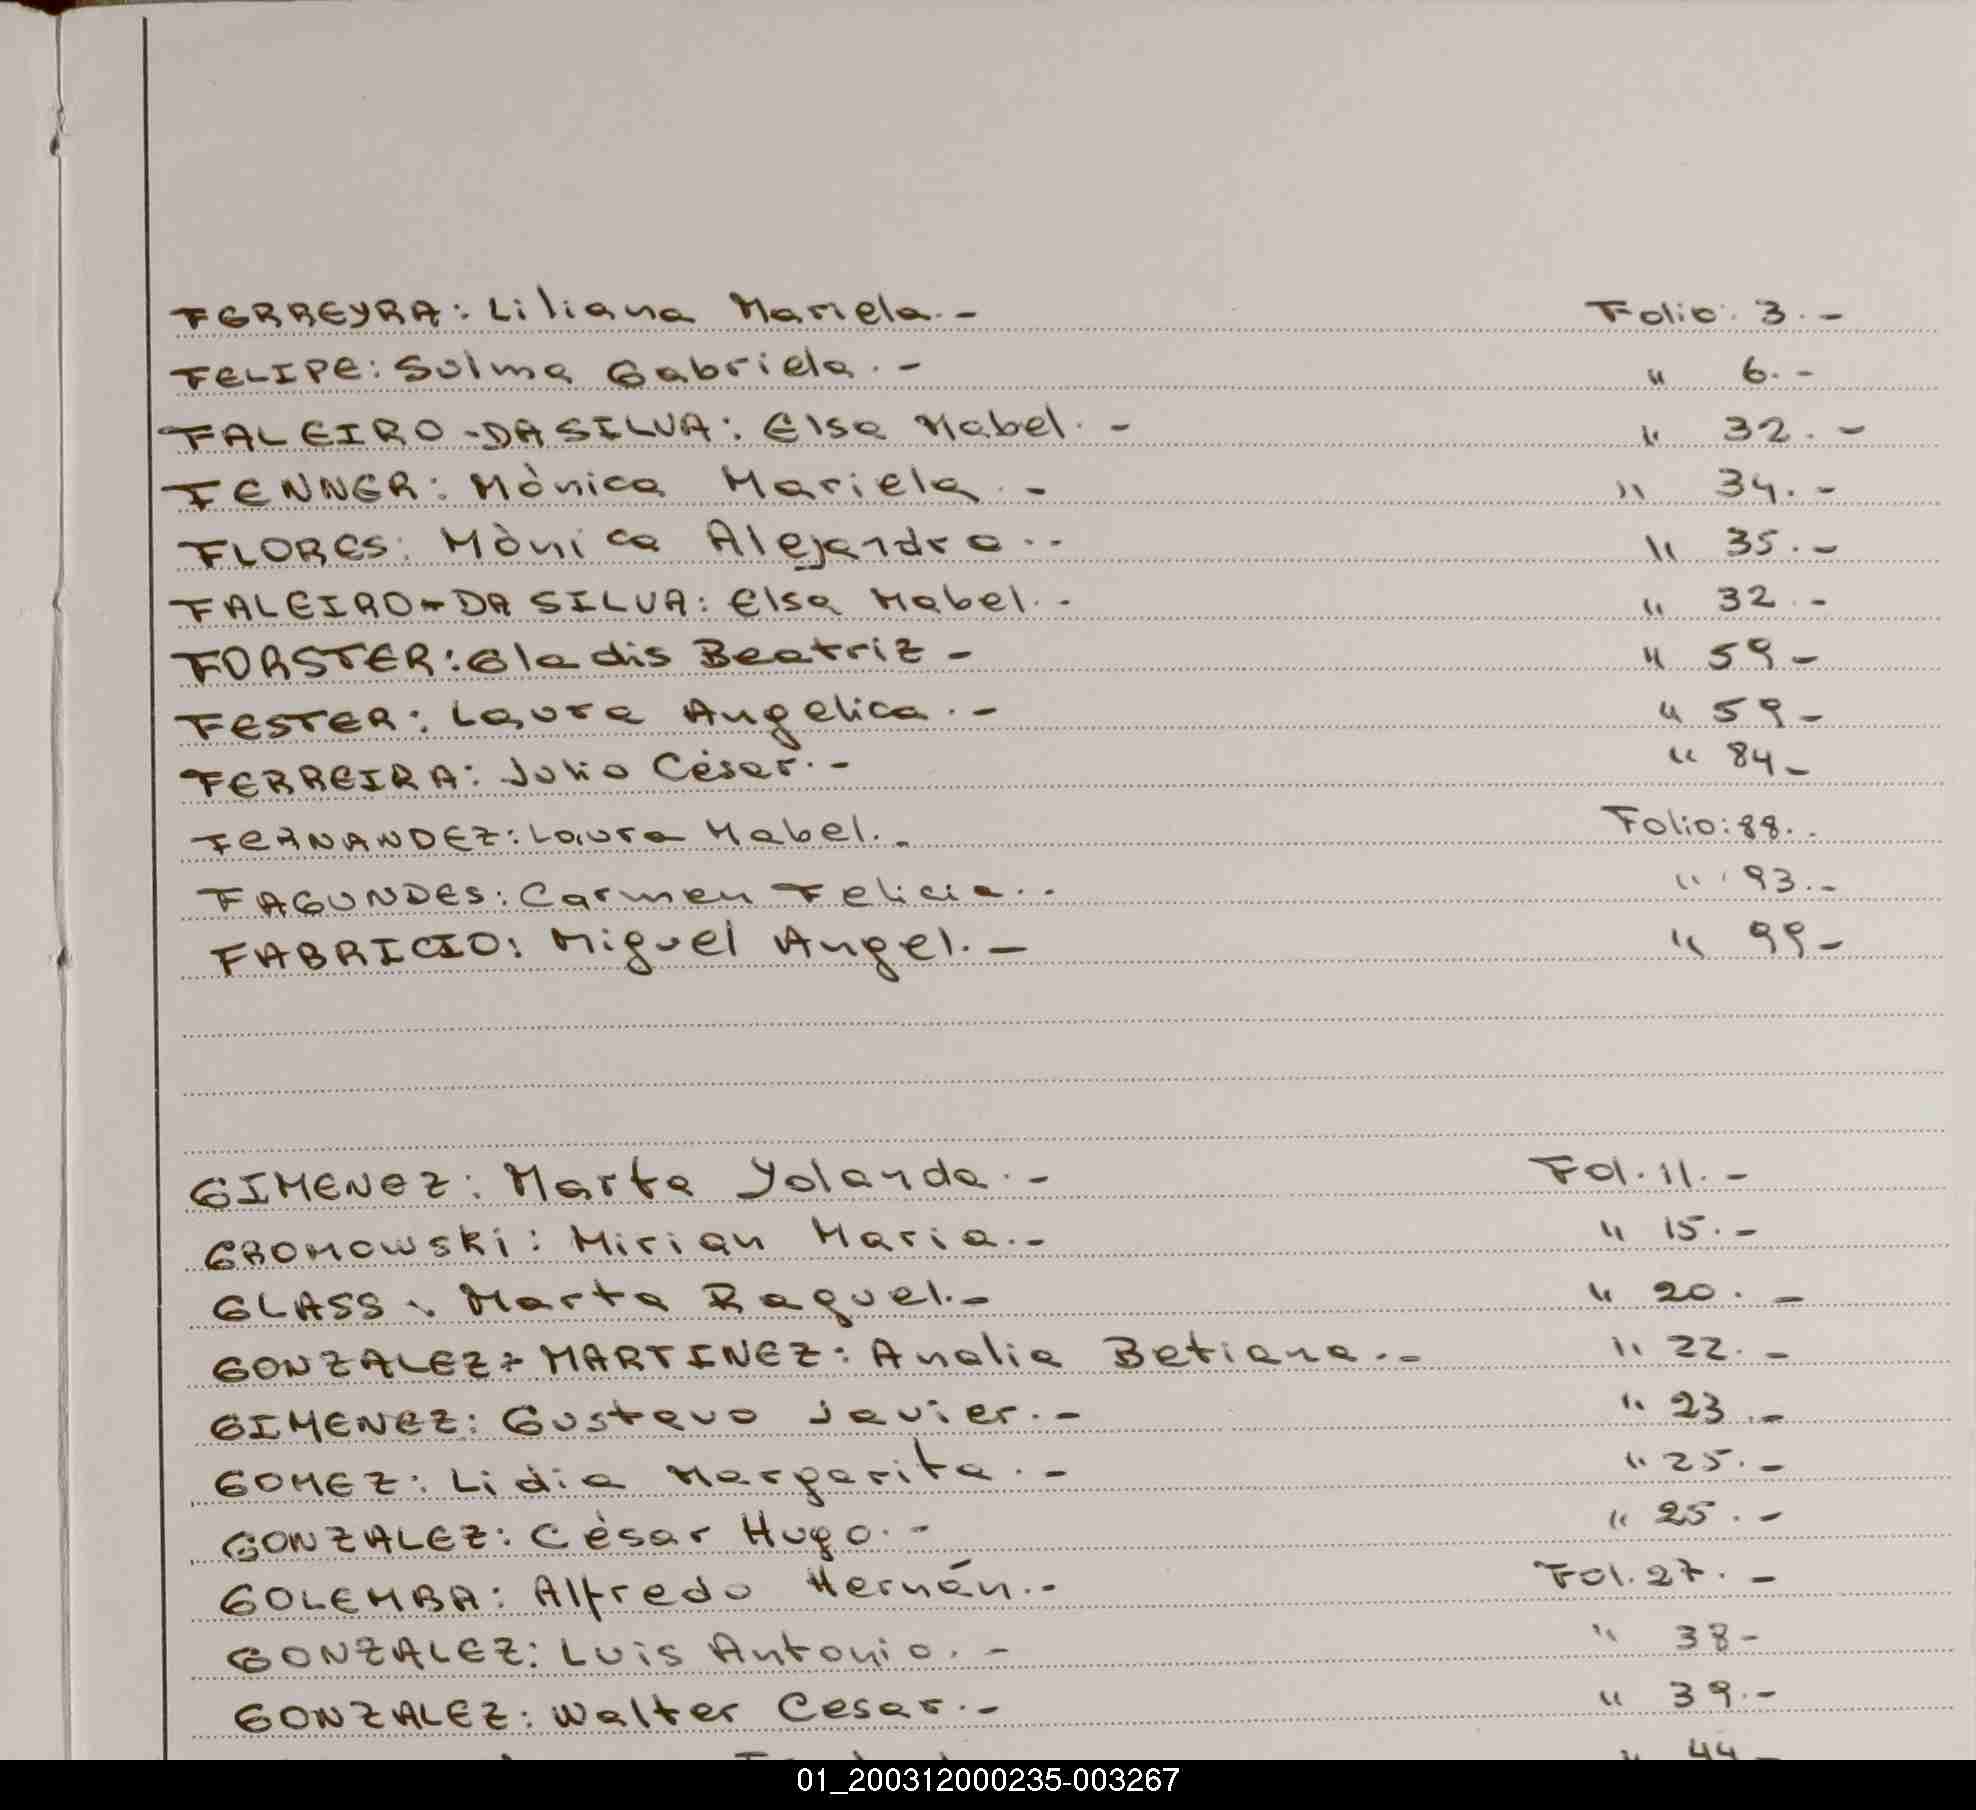 FERREYRA: Liliana Mariela.- Folio: 3.-
FELIPE: Sulma Gabriela.- " 6.-
FALEIRO-DA SILVA: Elsa Mabel.- " 32.-
FENNER: Mònica Mariela.- " 34.-
FLORES: Mònica Alejandra.- " 35.-
FALEIRO-DA SILVA: Elsa Mabel.- " 32.-
FORSTER: Gladis Beatriz - " 59-
FESTER: Laura Angelica.- " 59-
FERREIRA: Julio Cèsar.- " 84-
FERNANDEZ: Laura Mabel.- Folio: 88.-
FAGUNDES: Carmen Felicia.- " 93.-
FABRICIO: Miguel Angel.- " 99-
GIMENEZ: Marta Yolanda.- Fol. 11.-
GROMOWSKi: Mirian Maria.- " 15.-
GLASS: Marta Raquel.- " 20.-
GONZALEZ-MARTINEZ: Analia Betiana.- " 22.-
GIMENEZ: Gustavo Javier.- " 23.-
GOMEZ: Lidia Margarita.- " 25.-
GONZALEZ: Cèsar Hugo.- " 25.-
GOLEMBA: Alfredo Hernán.- Fol. 27.-
GONZALEZ: Luis Antonio.- " 38-
GONZALEZ: Walter Cesar.- " 39.-
" 44-
01_200312000235-003267